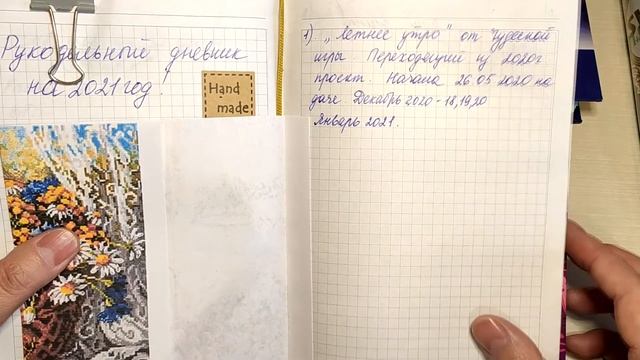 Рукодельный дневник
на 2021 год!
Hand
made
1) „Летнее утро" от Чудесной
иглы. Переходящий из 2020г
проект. Начала 26 05 2020 на
даче. Декабрь 2020 - 18,19,20
Январь 2021.